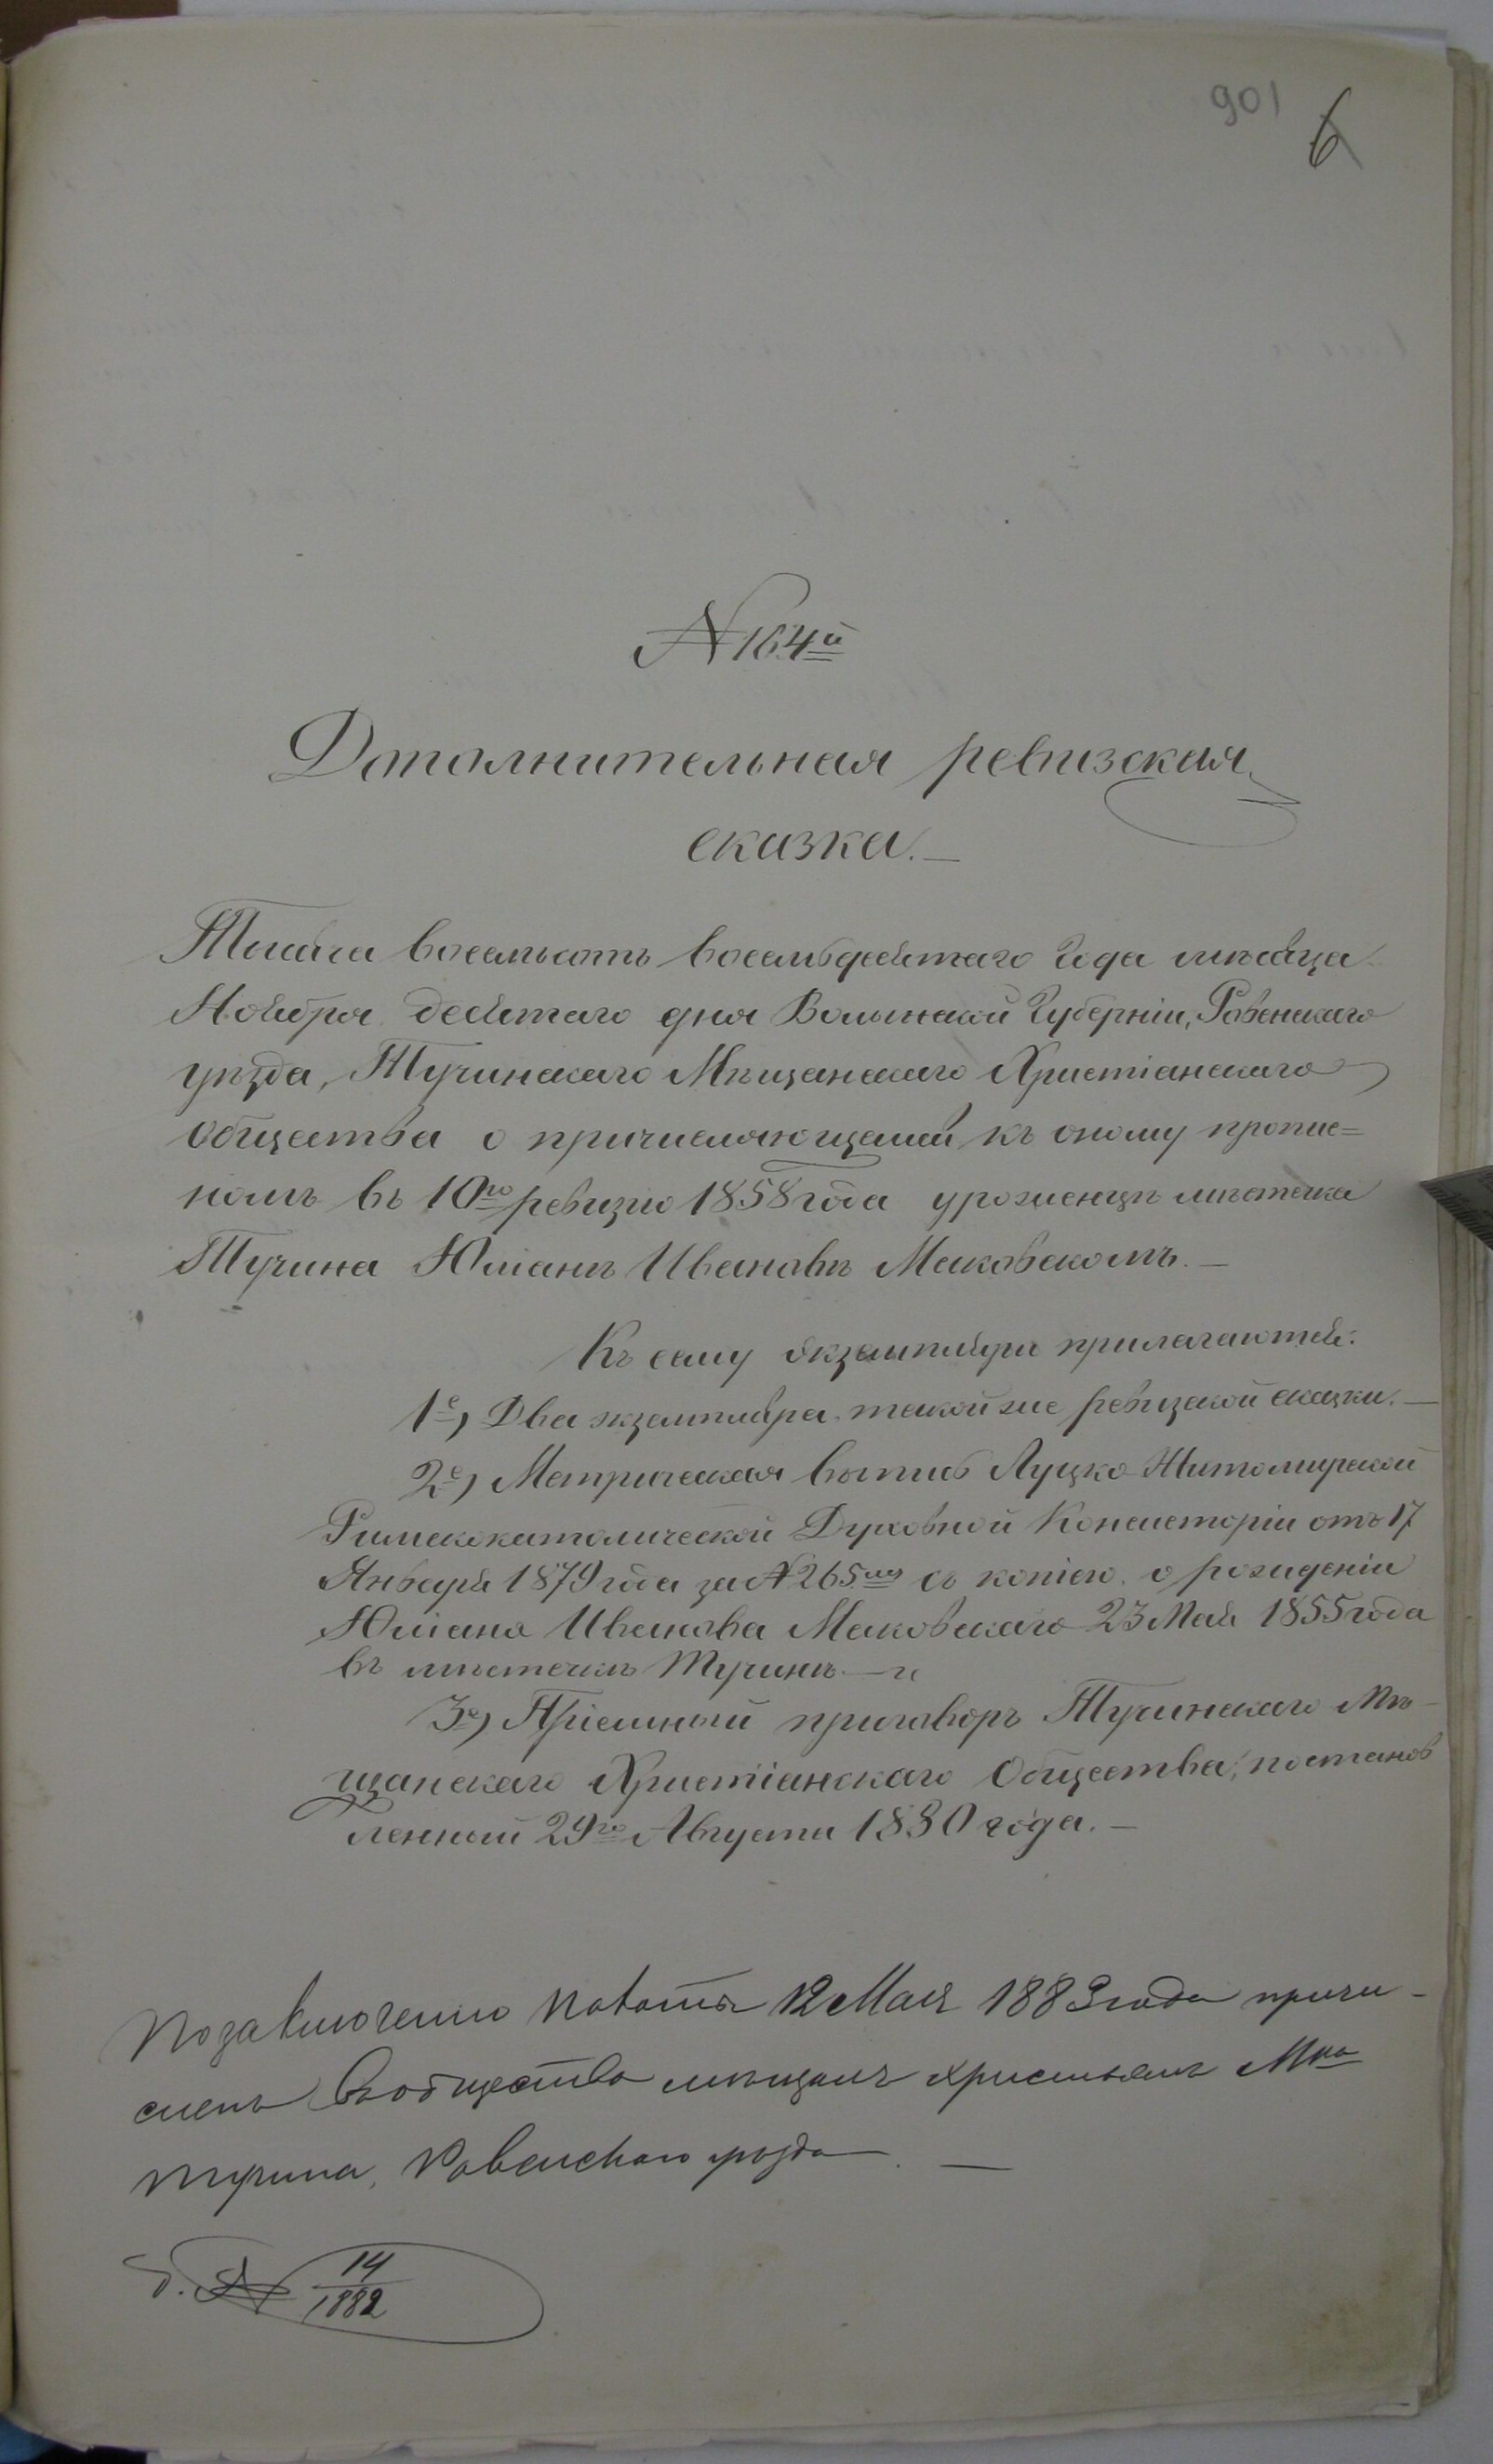 901 6
№ 164й
Дополнительная ревизская
сказка.—
Тысяча восемьсотъ восемьдесятаго года мѣсяца
Ноября десятаго дня Волынской Губерніи, Ровенскаго
уѣзда, Тучинскаго Мѣщанскаго Христіанскаго
Общества о причисляющемся къ оному пропис=
номъ въ 10ю ревизію 1858 года уроженцѣ мѣстечка
Тучина Юліанѣ Ивановѣ Маковскомъ.—
Къ сему экземпляру прилагаются:
1е) Два экземпляра такой же ревизской сказки.—
2е) Метрическая выпись Луцко-Житомирской
Римскокатолической Духовной Консисторіи отъ 17
Января 1879 года за № 265мъ съ копіею о рожденіи
Юліана Иванова Маковскаго 23 Мая 1855 года
въ мѣстечкѣ Тучинѣ.— и
3е) Пріемный приговоръ Тучинскаго Мѣ-
щанскаго Христіанскаго Общества, постанов
ленный 29го Августа 1880 года.—
По заключенію Палаты 12 Мая 1883 года причи-
сленъ въ общество мѣщанъ христьянъ Мка
Тучина, Ровенскаго уѣзда.—
д. № 14/1882